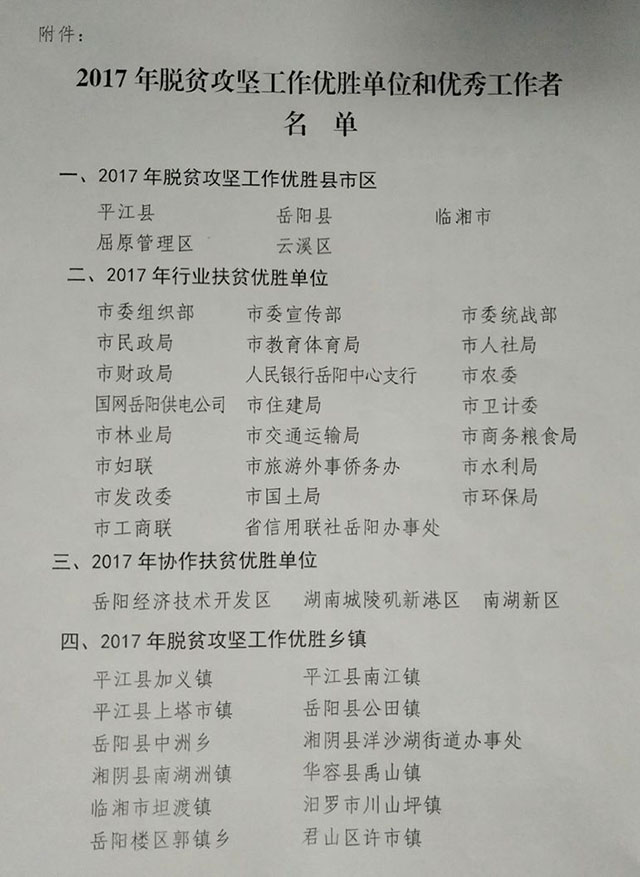 附件：
2017年脱贫攻坚工作优胜单位和优秀工作者
名 单
一、2017年脱贫攻坚工作优胜县市区
平江县 岳阳县 临湘市
屈原管理区 云溪区
二、2017年行业扶贫优胜单位
市委组织部 市委宣传部 市委统战部
市民政局 市教育体育局 市人社局
市财政局 人民银行岳阳中心支行 市农委
国网岳阳供电公司 市住建局 市卫计委
市林业局 市交通运输局 市商务粮食局
市妇联 市旅游外事侨务办 市水利局
市发改委 市国土局 市环保局
市工商联 省信用联社岳阳办事处
三、2017年协作扶贫优胜单位
岳阳经济技术开发区 湖南城陵矶新港区 南湖新区
四、2017年脱贫攻坚工作优胜乡镇
平江县加义镇 平江县南江镇
平江县上塔市镇 岳阳县公田镇
岳阳县中洲乡 湘阴县洋沙湖街道办事处
湘阴县南湖洲镇 华容县禹山镇
临湘市坦渡镇 汨罗市川山坪镇
岳阳楼区郭镇乡 君山区许市镇